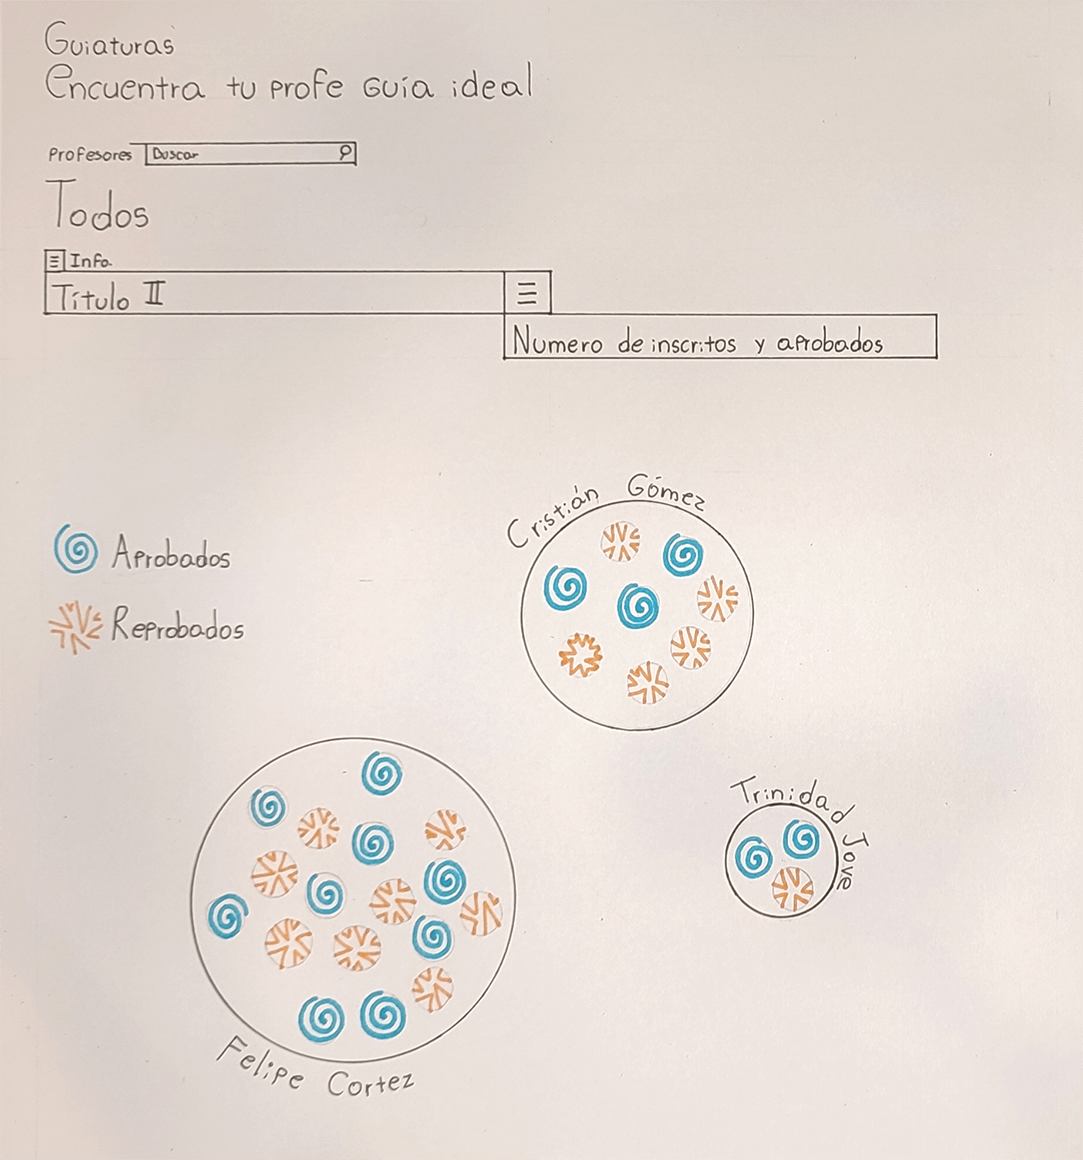 Guiaturas
Encuentra tu profe guía ideal
Profesores Buscar
Todos
Info.
Título II
Numero de inscritos y aprobados
Cristián Gómez
Aprobados
Reprobados
Trinidad Jove
Felipe Cortez